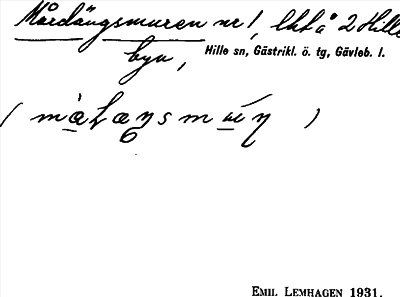 Mårdängsmuren nr 1, lht å 2 Hille
byn, Hille sn, Gästrikl. ö. tg, Gävleb. l.
EMIL LEMHAGEN 1931.